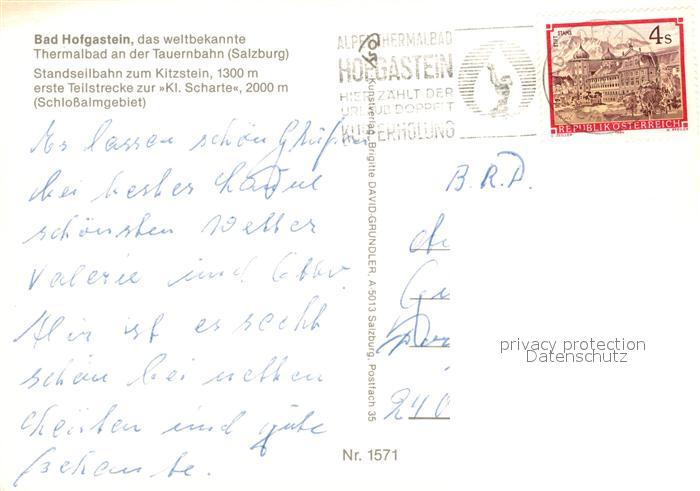 Bad Hofgastein, das weltbekannte
Thermalbad an der Tauernbahn (Salzburg)
Standseilbahn zum Kitzstein, 1300 m
erste Teilstrecke zur »Kl. Scharte«, 2000 m
(Schloßalmgebiet)
Es lassen schön Grüßen
bei bester
schönsten Wetter
Valerie und
Mir ist es recht
schön bei netten
und gute
Bekannte.
Kunstverlag Brigitte DAVID-GRÜNDLER, A-5013 Salzburg, Postfach 35
Nr. 1571
ALPEN THERMALBAD
HOFGASTEIN
HIER ZÄHLT DER
URLAUB DOPPELT
KUR ERHOLUNG
STIFT STAMS
4 S
REPUBLIK ÖSTERREICH
B.R.D.
240
privacy protection
Datenschutz